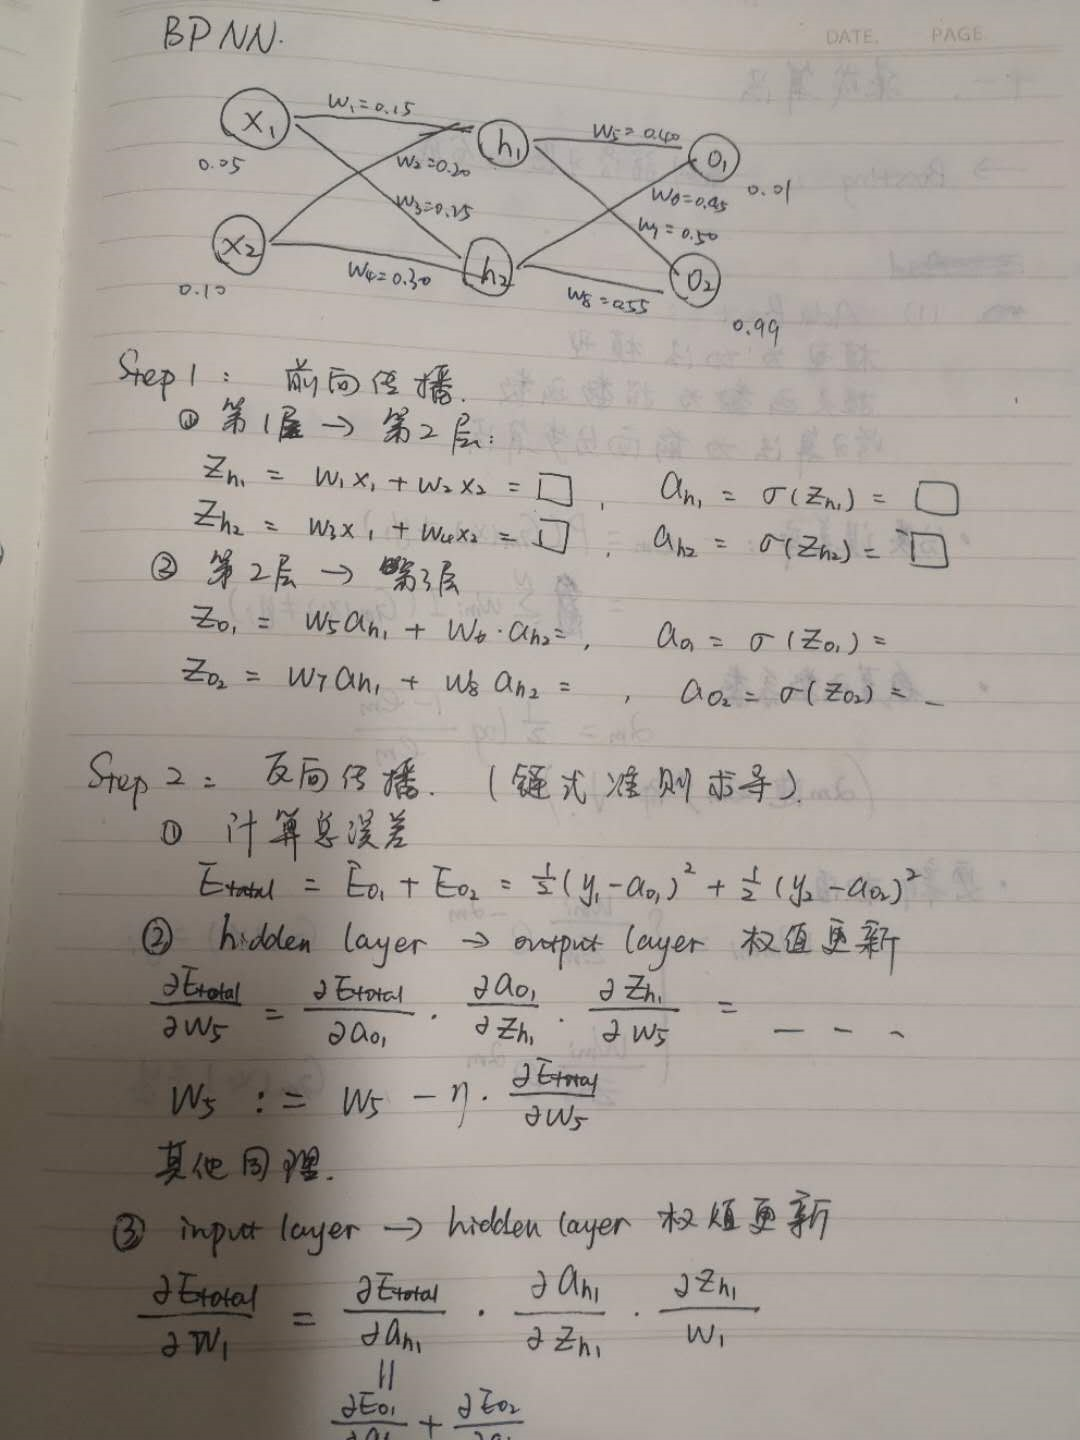 DATE. PAGE.
BPNN.
x₁ w₁=0.15 h₁ w₅=0.40 o₁
0.05 w₂=0.20 w₆=0.45 0.01
w₃=0.25 w₇=0.50
x₂ w₄=0.30 h₂ w₈=0.55 o₂
0.10 0.99
Step 1: 前向传播.
① 第1层 → 第2层:
Zh₁ = w₁x₁ + w₂x₂ = □, ah₁ = σ(Zh₁) = □
Zh₂ = w₃x₁ + w₄x₂ = □. ah₂ = σ(Zh₂) = □
② 第2层 → 第3层
Zo₁ = w₅ah₁ + w₆·ah₂ = , ao₁ = σ(Zo₁) =
Zo₂ = w₇ah₁ + w₈ah₂ = , ao₂ = σ(Zo₂) = _
Step 2: 反向传播. (链式准则求导).
① 计算总误差
Etotal = Eo₁ + Eo₂ = ½(y₁-ao₁)² + ½(y₂-ao₂)²
② hidden layer → output layer 权值更新
∂Etotal/∂w₅ = ∂Etotal/∂ao₁ · ∂ao₁/∂Zh₁ · ∂Zh₁/∂w₅ = _ _ _
w₅ := w₅ - η · ∂Etotal/∂w₅
其他同理.
③ input layer → hidden layer 权值更新
∂Etotal/∂w₁ = ∂Etotal/∂ah₁ · ∂ah₁/∂Zh₁ · ∂Zh₁/w₁
||
∂Eo₁ + ∂Eo₂